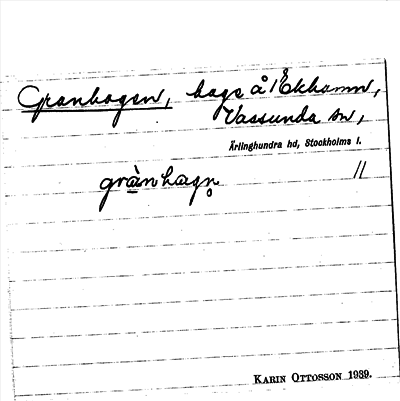 Granhagen, hage å Ekhamn,
Vassunda sn,
Ärlinghundra hd, Stockholms l.
grànhagn̥ //
KARIN OTTOSSON 1939.